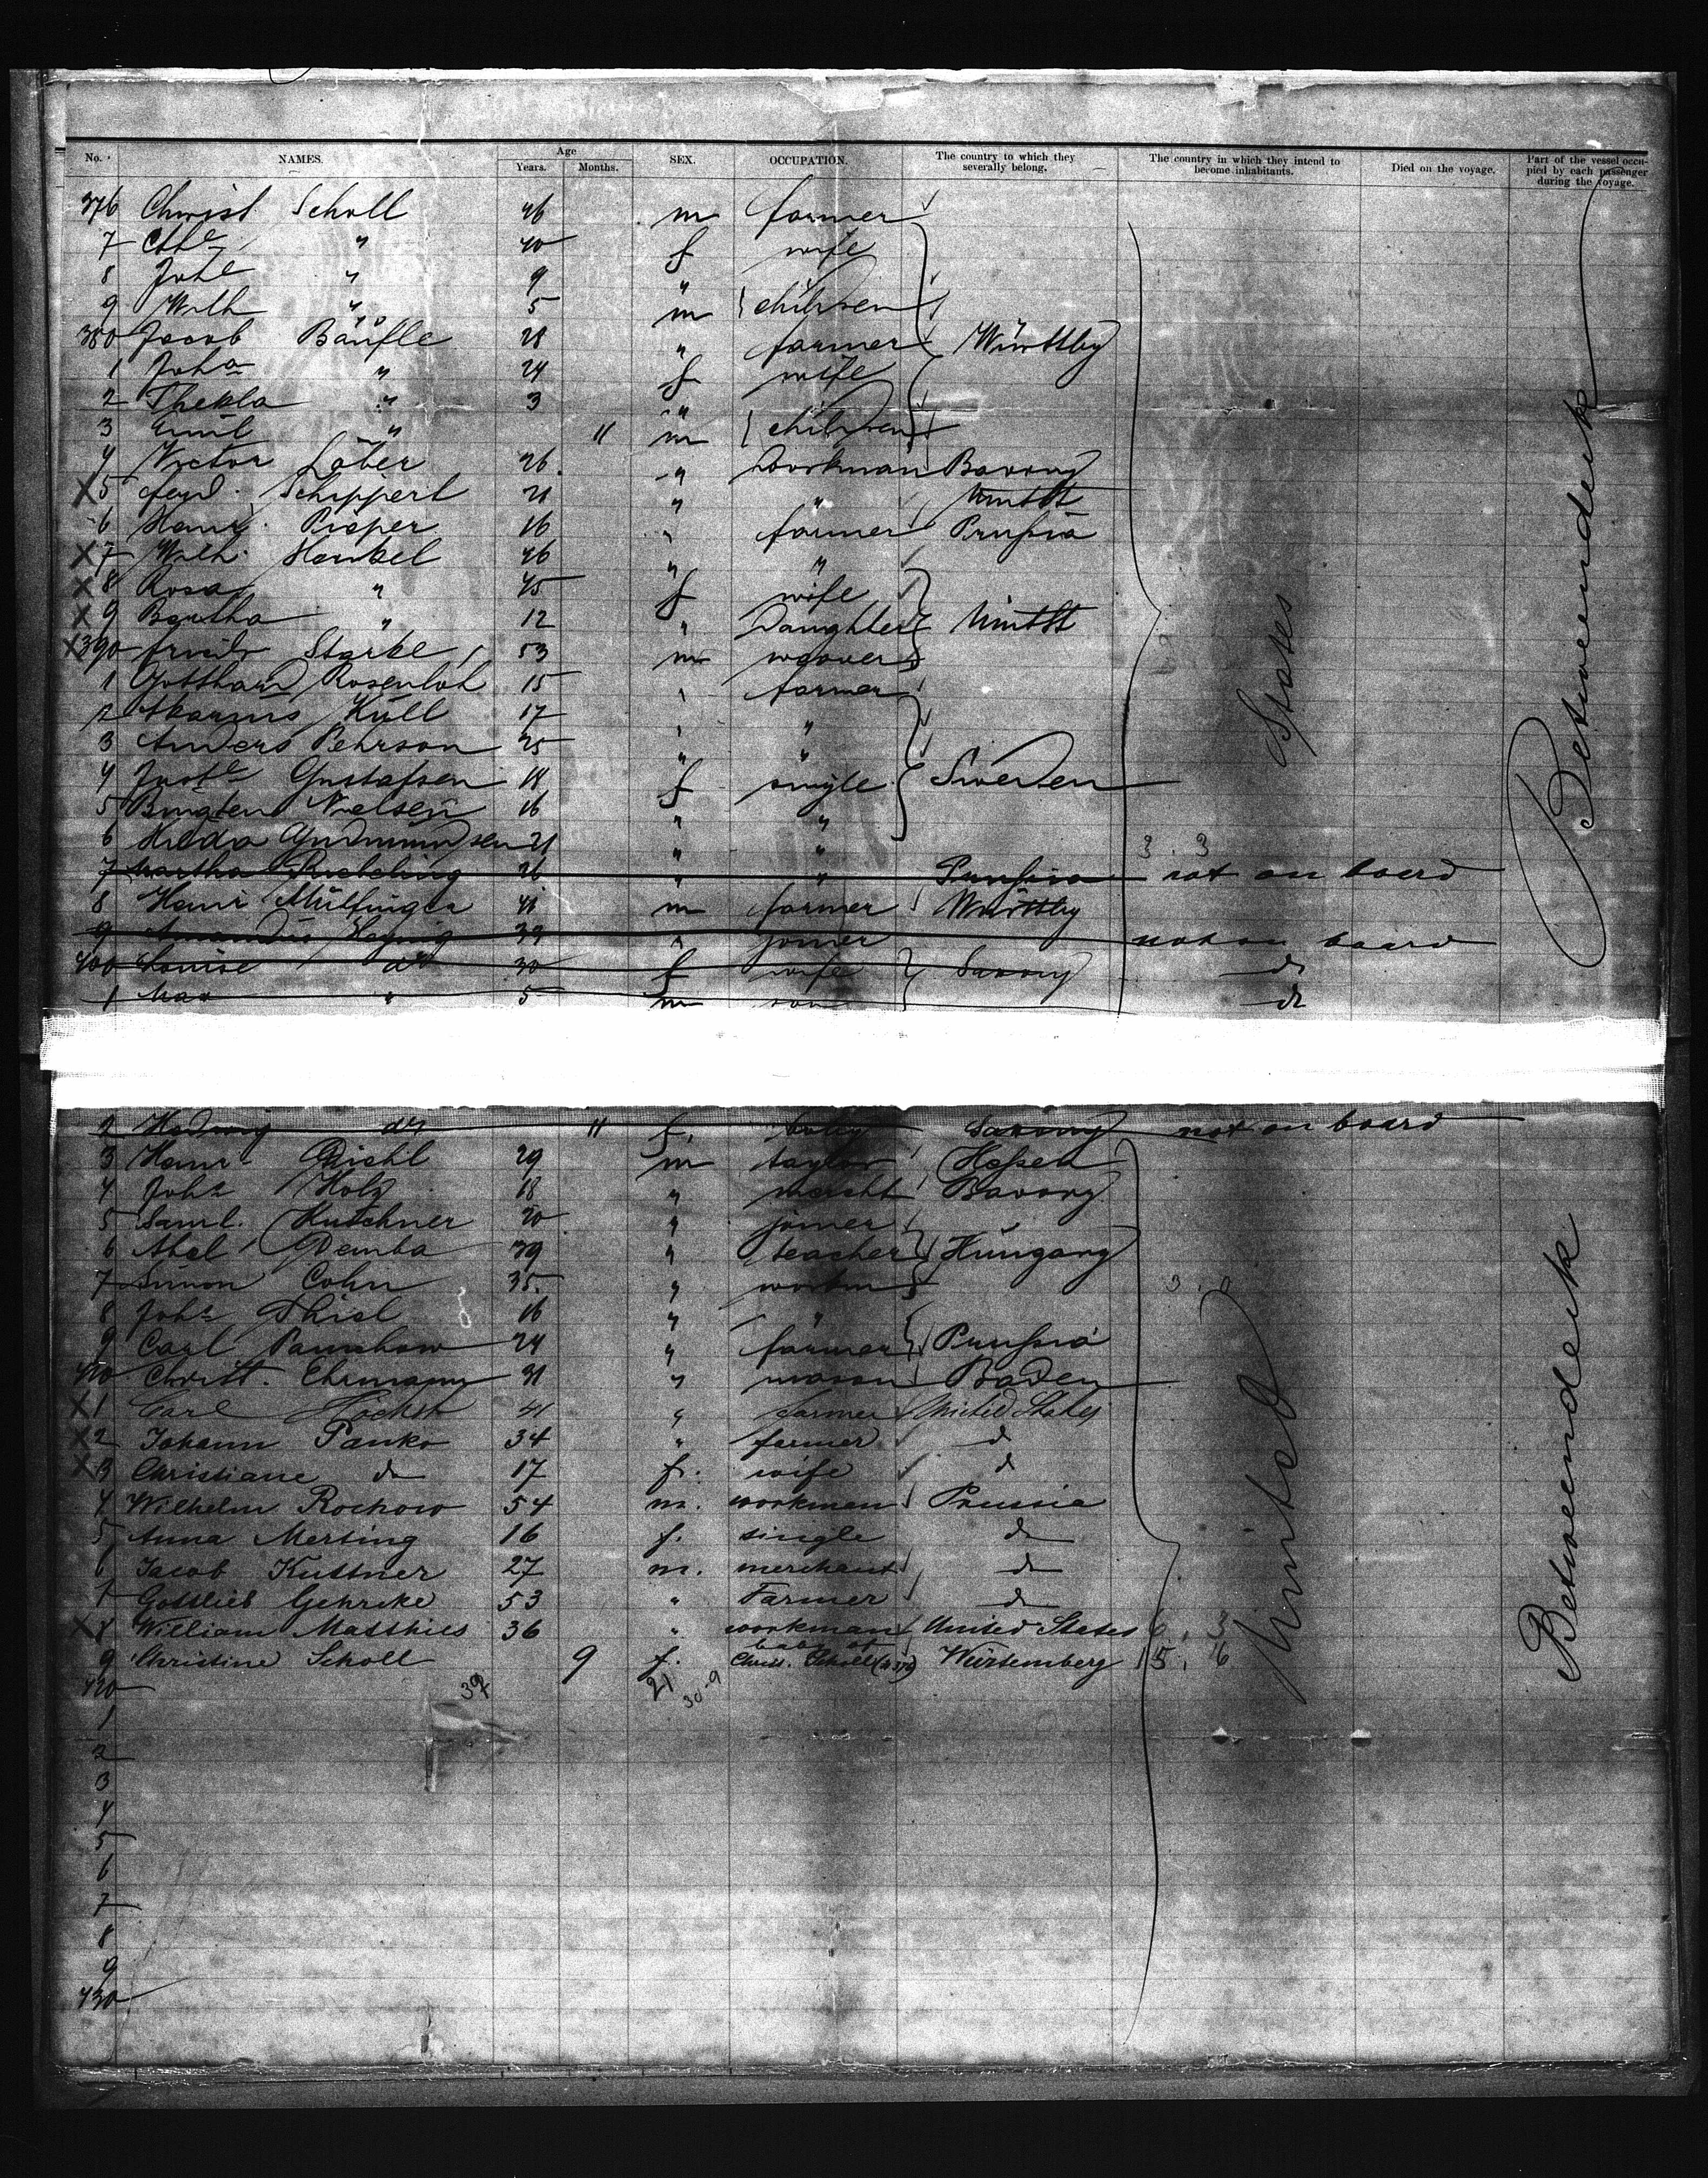 No. NAMES. Age Years. Months. SEX. OCCUPATION. The country to which they severally belong. The country in which they intend to become inhabitants. Died on the voyage. Part of the vessel occupied by each passenger during the voyage.
376 Christ. Scholl 46 m farmer
7 " 40 f wife
8 Joh " 9 "
9 Wilh " 5 m children
380 Jacob Bäufle 28 " farmer Württbg
1 Joha " 24 f wife
2 Thekla " 3 "
3 Emil " 11 m children
4 Victor Löber 26 " workman Bavony
X5 Schippert 21 " " Württ
6 Henr. Pieper 16 " farmer Prussia
X7 Wilh. Henkel 46 " "
X8 Rosa " 45 f wife
X9 Bertha " 12 " Daughter Württ
X390 Friedr Starke 53 m weaver
1 Gotthard Rosenloh 15 " farmer
2 Küll 17 " "
3 Anders Pehrson 25 " "
4 Gustafsen 18 f single Sweden
5 Nielsen 16 " "
6 Gudmundsen 21 " "
7 Martha Riebeling 26 " " Prussia not on board
8 Henr Mülfinger 41 m farmer Württbg
9 39 " joiner not on board
400 Louise do 30 f wife Saxony do
1 Max " 5 m son do
States
Betweendeck
2 Hedwig do 11 f. baby Saxony not on board
3 Henr. Diehl 29 m taylor Hessen
4 Joh. Holz 18 " mercht Bavony
5 Saml. Kutschner 20 " joiner
6 Abel Demba 39 " teacher Hungary
7 Simon Cohn 35 " workm
8 Joh. Thiel 16 " "
9 Carl 24 " farmer Prussia
410 Christ. Ehrmann 31 " mason Baden
X1 Carl Höchst 41 " farmer United States
X2 Johann Panko 34 " farmer do
X3 Christiane do 17 f. wife do
4 Wilhelm Rochow 54 m. workman Prussia
5 Anna Merting 16 f. single do
6 Jacob Kuttner 27 m. merchant do
7 Gottlieb Gehrcke 53 " Farmer do
X8 William Matthies 36 " workman United States
9 Christine Scholl 9 f. baby of Christ. Scholl Würtemberg
420
1
2
3
4
5
6
7
8
9
430
United
Betweendeck